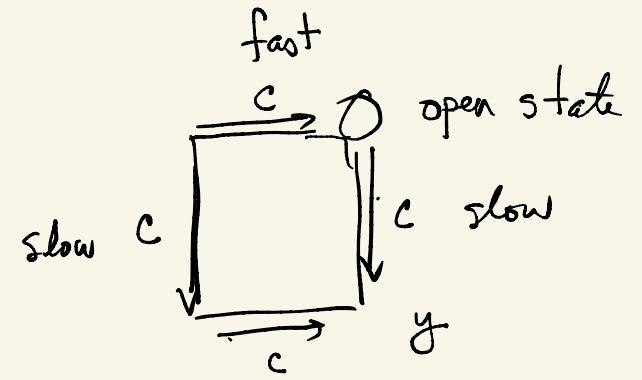 fast
C
O open state
slow C
C slow
C
y